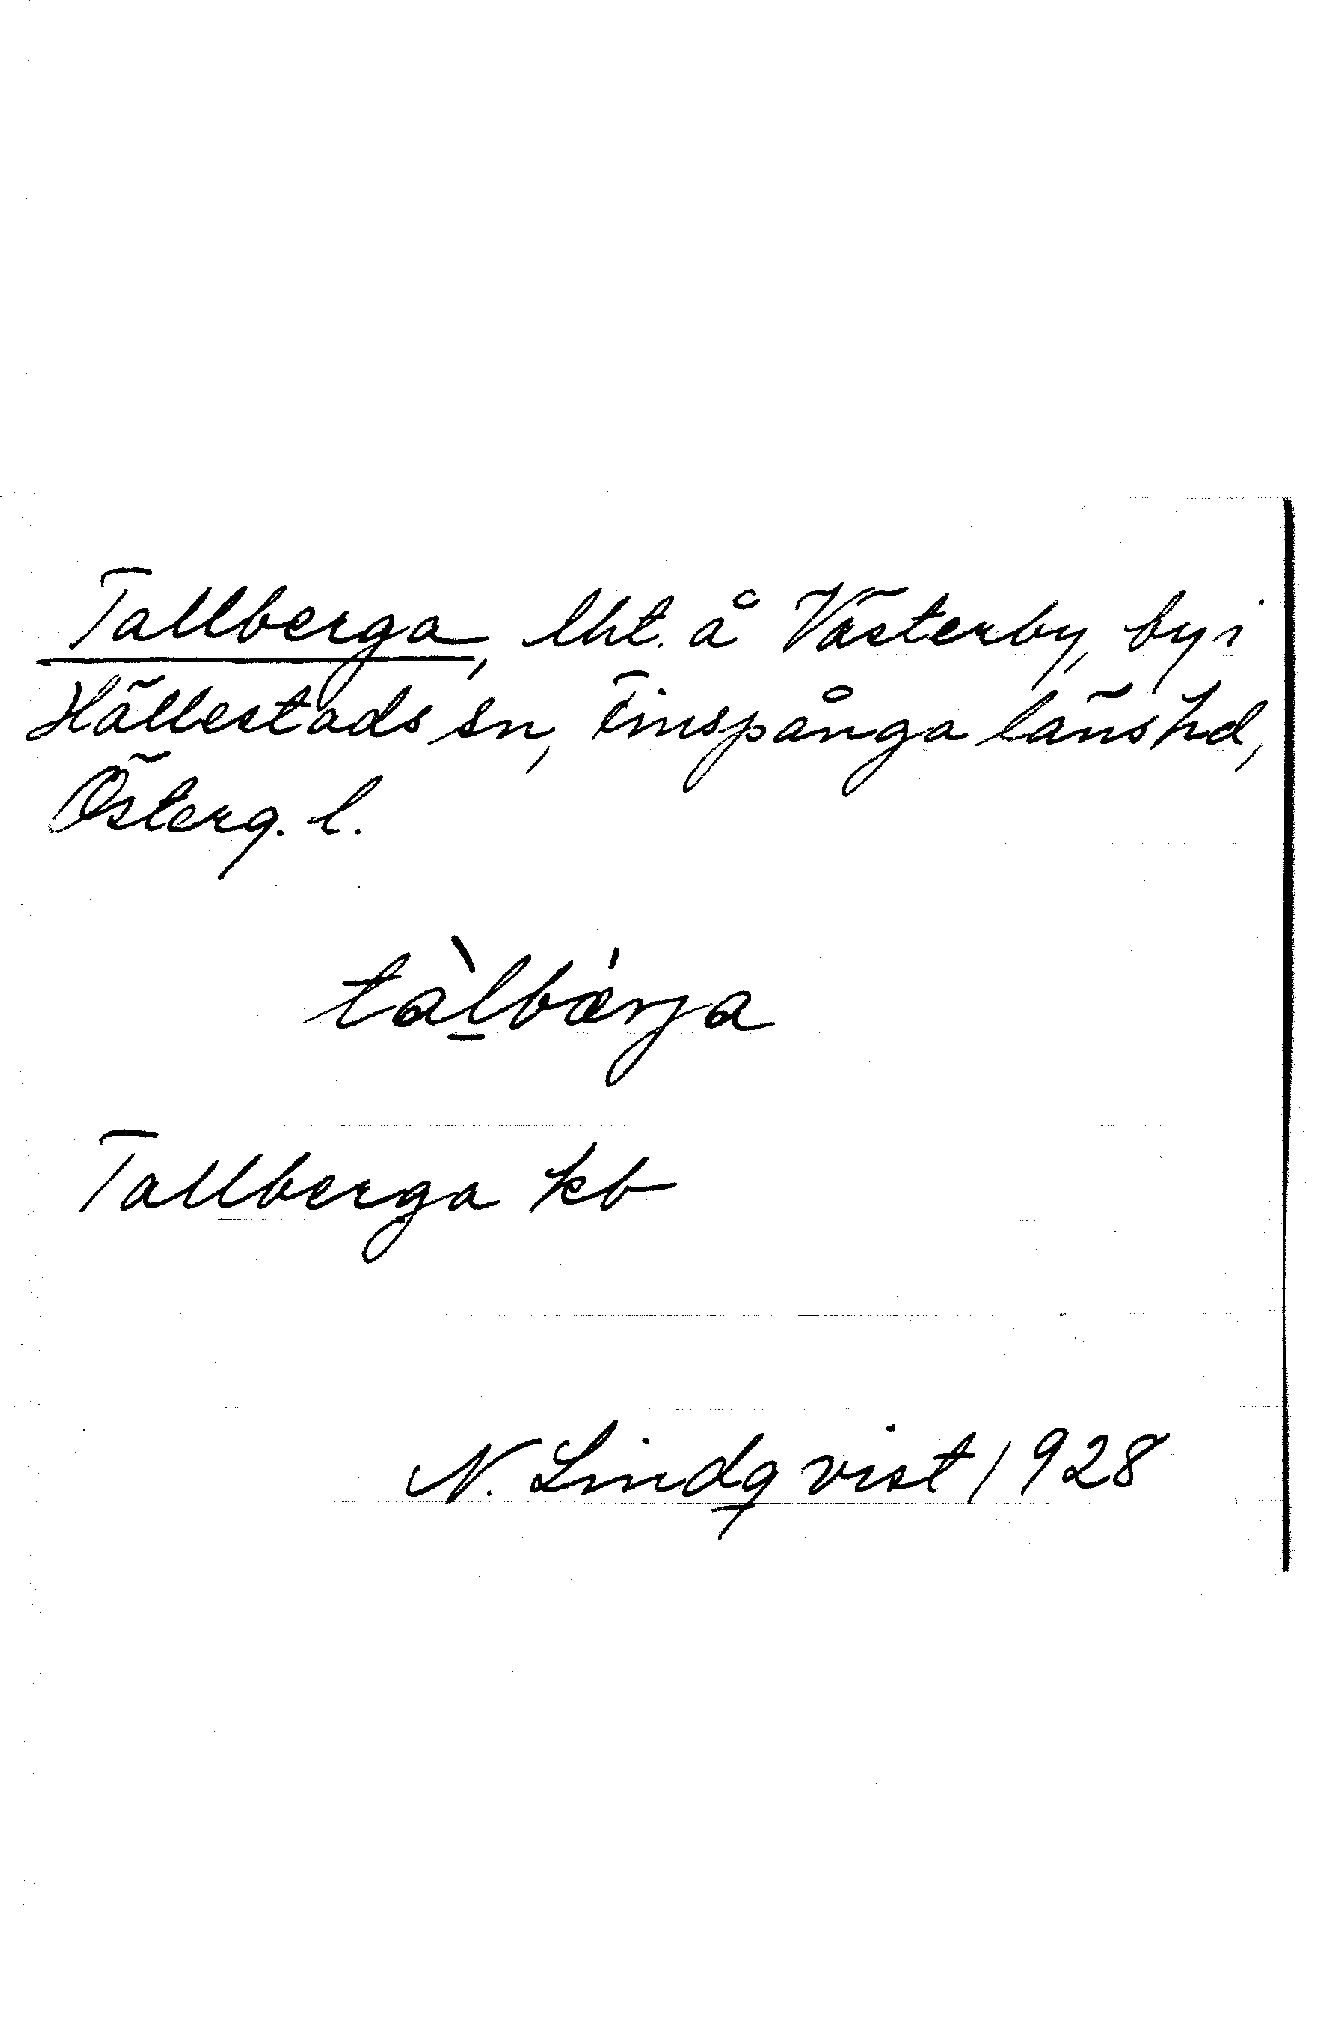 Tallberga, lht. å Västerby, by i
Hällestads sn, Finspånga läns hd,
Österg. l.
tàl̠bǽrja
Tallberga kb
N. Lindqvist 1928